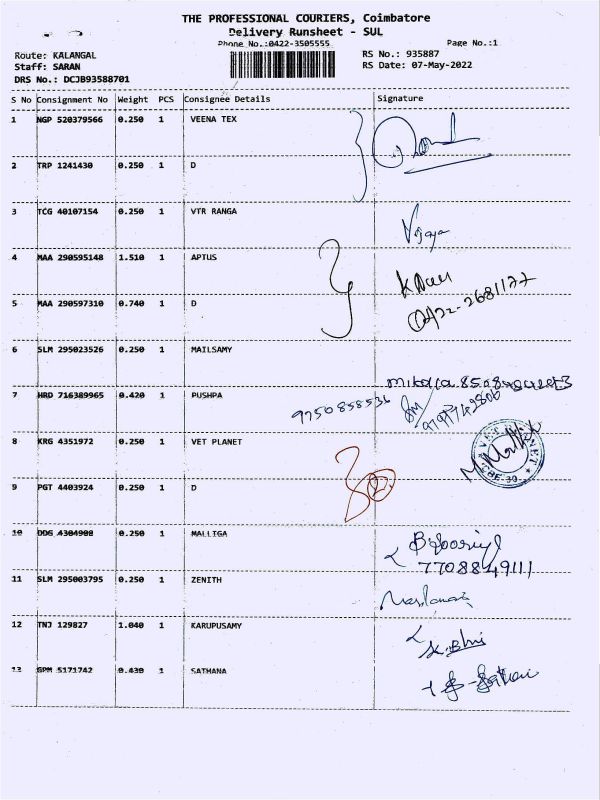 THE PROFESSIONAL COURIERS, Coimbatore
Delivery Runsheet - SUL
Phone No.:0422-3505555 Page No.:1
Route: KALANGAL RS No.: 935887
Staff: SARAN RS Date: 07-May-2022
DRS No.: DCJB93588701
S No Consignment No Weight PCS Consignee Details Signature
1 NGP 520379566 0.250 1 VEENA TEX
2 TRP 1241430 0.250 1 D
3 TCG 40107154 0.250 1 VTR RANGA Vijaya
4 MAA 290595148 1.510 1 APTUS
0422-2681177
5 MAA 290597310 0.740 1 D
6 SLM 295023526 0.250 1 MAILSAMY
7 HRD 716389965 0.420 1 PUSHPA 9750858536
8 KRG 4351972 0.250 1 VET PLANET
9 PGT 4403924 0.250 1 D 2
10 DDG 4304908 0.250 1 MALLIGA
7708849111
11 SLM 295003795 0.250 1 ZENITH
12 TNJ 129827 1.040 1 KARUPUSAMY
13 GPM 5171742 0.430 1 SATHANA